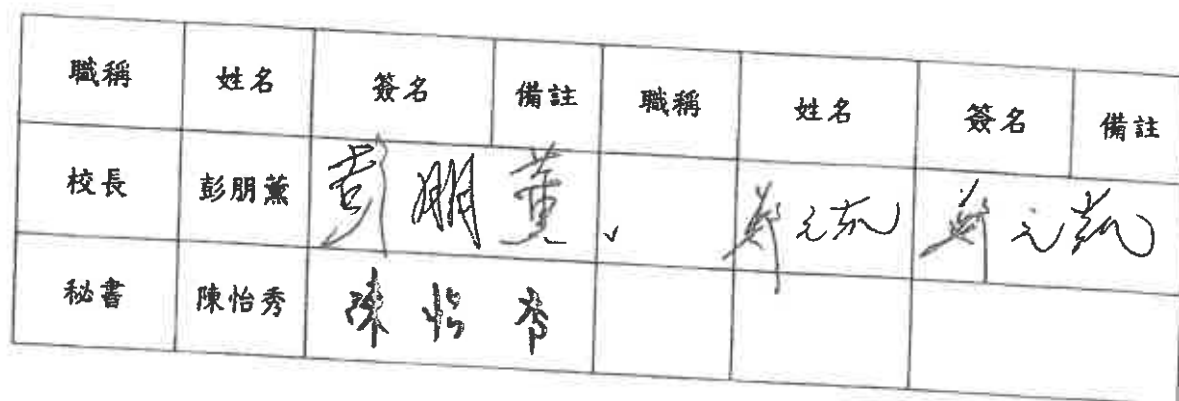 職稱 姓名 簽名 備註 職稱 姓名 簽名 備註
校長 彭朋薰 彭朋薰 鄭元凱 鄭元凱
秘書 陳怡秀 陳怡秀